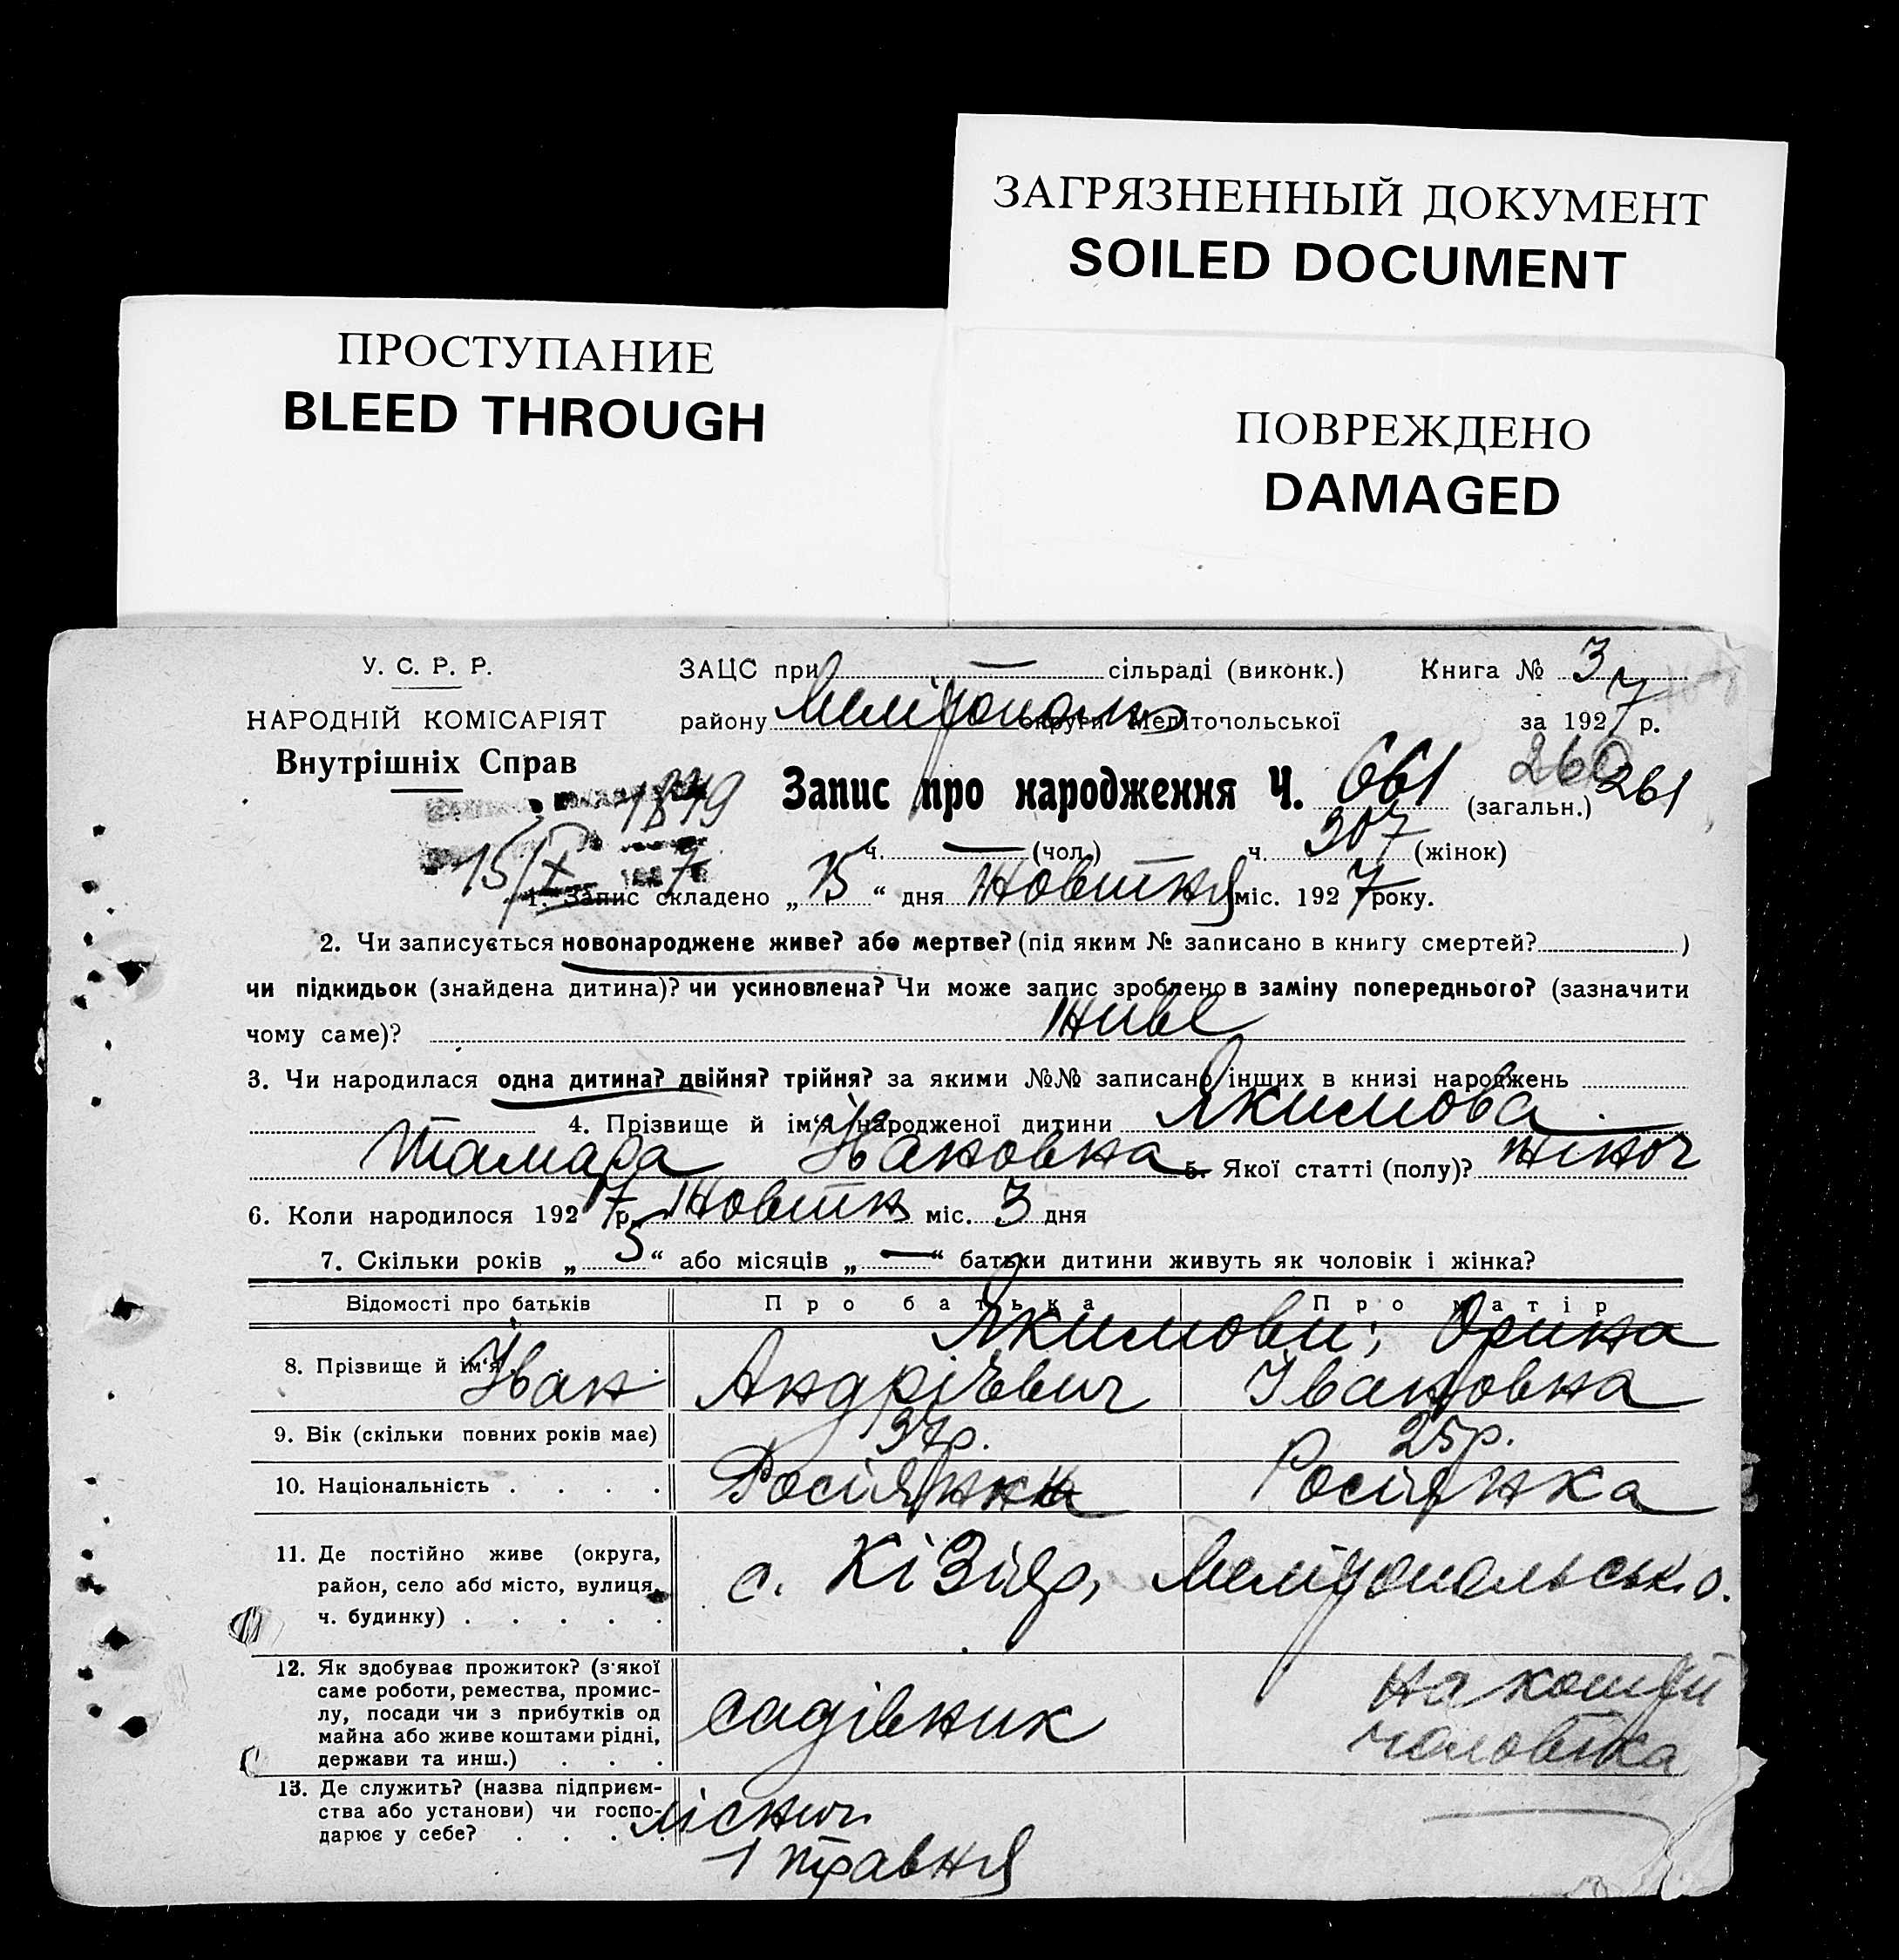 ЗАГРЯЗНЕННЫЙ ДОКУМЕНТ
SOILED DOCUMENT
ПРОСТУПАНИЕ
BLEED THROUGH
ПОВРЕЖДЕНО
DAMAGED
У. С. Р. Р.
НАРОДНІЙ КОМІСАРІЯТ
Внутрішніх Справ
ЗАЦС при — сільраді (виконк.) Книга № 3
району Мелітополь округи Мелітопольської за 1927 р.
1849
15/X 7
Запис про народження Ч. 661 (загальн.) 260 261
ч. — (чол.) ч. 307 (жінок)
1. Запис складено „15“ дня Жовтня міс. 1927 року.
2. Чи записується новонароджене живе? або мертве? (під яким № записано в книгу смертей? )
чи підкидьок (знайдена дитина)? чи усиновлена? Чи може запис зроблено в заміну попереднього? (зазначити
чому саме)? Живе
3. Чи народилася одна дитина? двійня? трійня? за якими №№ записано інших в книзі народжень
4. Прізвище й ім'я народженої дитини Якимова
Тамара Івановна 5. Якої статті (полу)? жіноч
6. Коли народилося 1927 р. Жовтн міс. 3 дня
7. Скільки років „5“ або місяців „—“ батьки дитини живуть як чоловік і жінка?
Відомості про батьків Про батька Про матір
Якимови; Орина
8. Прізвище й ім'я Іван Андрієвич Івановна
9. Вік (скільки повних років має) 37р. 25р.
10. Національність . . . . Росіянка Росіянка
11. Де постійно живе (округа,
район, село або місто, вулиця,
ч. будинку) . . . . .
с. Кізіяр, Мелітопольськ. о.
12. Як здобуває прожиток? (з'якої
саме роботи, ремества, промис-
лу, посади чи з прибутків од
майна або живе коштами рідні,
держави та инш.) . . .
садівник
на кошти
чоловіка
13. Де служить? (назва підприєм-
ства або установи) чи госпо-
дарює у себе? . . . .
1 травня